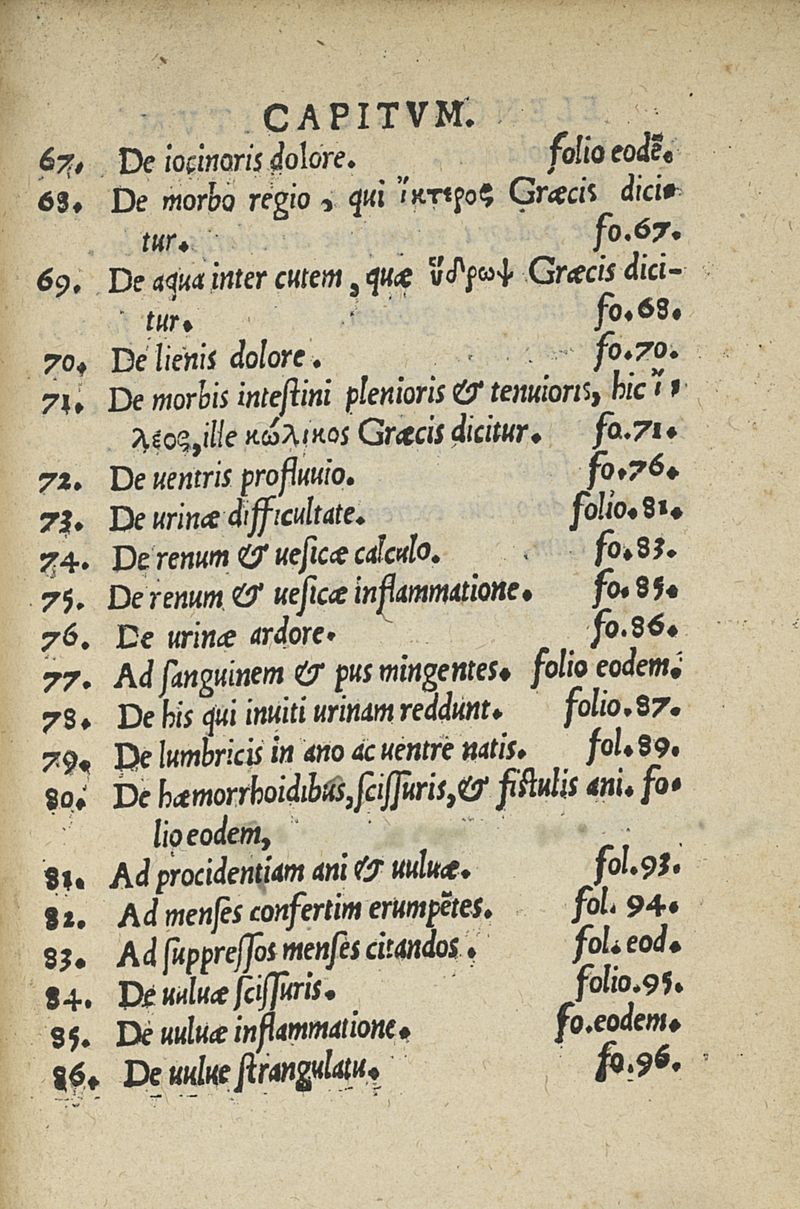 CAPITVM.
67. De iocinoris dolore. folio eodē.
68. De morbo regio, qui ἵκτερος Græcis dici-
tur. fo.67.
69. De aqua inter cutem, quæ ὕδρωψ Græcis dici-
tur. fo.68.
70. De lienis dolore. fo.70.
71. De morbis inteſtini plenioris & tenuioris, hic ἴ-
λεος, ille κώλικος Græcis dicitur. fo.71.
72. De uentris profluuio. fo.76.
73. De urinæ difficultate. folio.81.
74. De renum & ueſicæ calculo. fo.83.
75. De renum & ueſicæ inflammatione. fo.85.
76. De urinæ ardore. fo.86.
77. Ad ſanguinem & pus mingentes. folio eodem.
78. De his qui inuiti urinam reddunt. folio.87.
79. De lumbricis in ano ac uentre natis. fol.89.
80. De hæmorrhoidibus, ſciſſuris, & fiſtulis ani. fo-
lio eodem,
81. Ad procidentiam ani & uuluæ. fol.93.
82. Ad menſes confertim erumpētes. fol. 94.
83. Ad ſuppreſſos menſes citandos. fol. eod.
84. De uuluæ ſciſſuris. folio.95.
85. De uuluæ inflammatione. fo.eodem.
86. De uulue ſtrangulatu. fo.96.